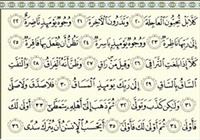 كَلَّا بَلْ تُحِبُّونَ ٱلْعَاجِلَةَ ٢٠ وَتَذَرُونَ ٱلْآخِرَةَ ٢١ وُجُوهٌ يَوْمَئِذٍ نَّاضِرَةٌ ٢٢
إِلَىٰ رَبِّهَا نَاظِرَةٌ ٢٣ وَوُجُوهٌ يَوْمَئِذٍۭ بَاسِرَةٌ ٢٤ تَظُنُّ أَن يُفْعَلَ بِهَا فَاقِرَةٌ ٢٥
كَلَّا إِذَا بَلَغَتِ ٱلتَّرَاقِيَ ٢٦ وَقِيلَ مَنْ رَاقٍ ٢٧ وَظَنَّ أَنَّهُ ٱلْفِرَاقُ ٢٨ وَٱلْتَفَّتِ
ٱلسَّاقُ بِٱلسَّاقِ ٢٩ إِلَىٰ رَبِّكَ يَوْمَئِذٍ ٱلْمَسَاقُ ٣٠ فَلَا صَدَّقَ وَلَا صَلَّىٰ
٣١ وَلَٰكِن كَذَّبَ وَتَوَلَّىٰ ٣٢ ثُمَّ ذَهَبَ إِلَىٰٓ أَهْلِهِۦ يَتَمَطَّىٰٓ ٣٣ أَوْلَىٰ لَكَ
فَأَوْلَىٰ ٣٤ ثُمَّ أَوْلَىٰ لَكَ فَأَوْلَىٰٓ ٣٥ أَيَحْسَبُ ٱلْإِنسَٰنُ أَن يُتْرَكَ سُدًى ٣٦